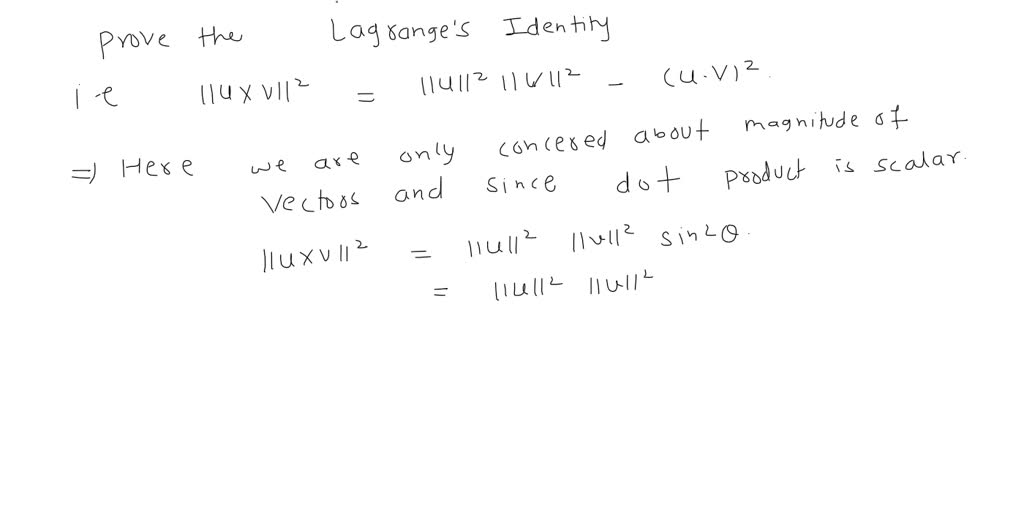 Prove the Lagrange's Identity
i.e ||u x v||² = ||u||² ||v||² - (u.v)².
=) Here we are only concered about magnitude of
vectors and since dot product is scalar.
||u x v||² = ||u||² ||v||² sin²θ.
= ||u||² ||v||²